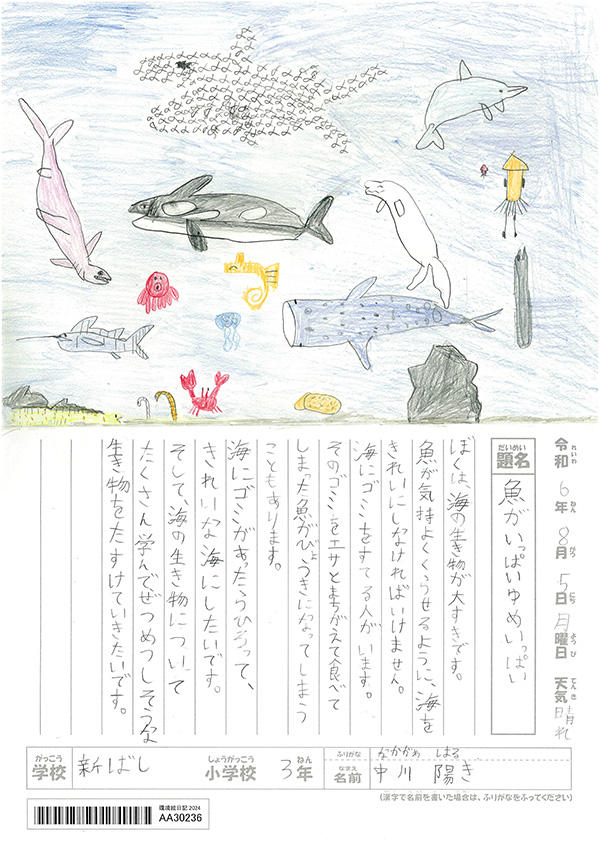 令和6年8月5日月曜日 天気晴れ
れいわ ねん がつ にち ようび てんき
だいめい
題名 魚がいっぱいゆめいっぱい
ぼくは、海の生き物が大すきです。
魚が気持よくくらせるように、海を
きれいにしなければいけません。
海にゴミをすてる人がいます。
そのゴミをエサとまちがえて食べて
しまった魚がびょうきになってしまう
こともあります。
海にゴミがあったらひろって、
きれいな海にしたいです。
そして、海の生き物について
たくさん学んでぜつめつしそうな
生き物をたすけていきたいです。
がっこう しょうがっこう ねん
学校 新ばし 小学校 3年
ふりがな なかがわ はる
なまえ
名前 中川 陽き
(漢字で名前を書いた場合は、ふりがなをふってください)
環境絵日記 2024
AA30236